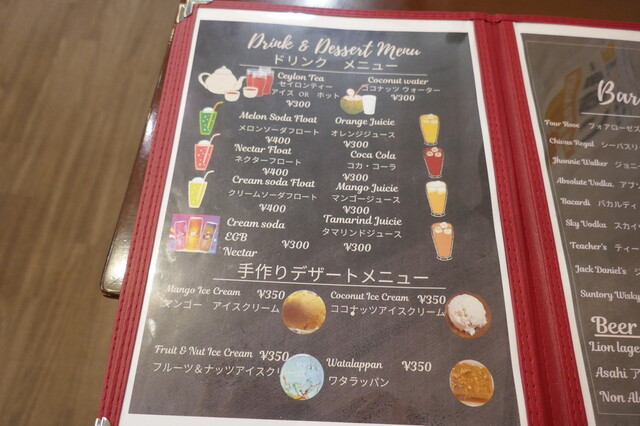 Drink & Dessert Menu
ドリンク メニュー
Ceylon Tea
セイロンティー
アイス OR ホット
¥300
Coconut water
ココナッツ ウォーター
¥300
Melon Soda Float
メロンソーダフロート
¥400
Orange Juicie
オレンジジュース
¥300
Nectar Float
ネクターフロート
¥400
Coca Cola
コカ・コーラ
¥300
Cream soda Float
クリームソーダフロート
¥400
Mango Juicie
マンゴージュース
¥300
Cream soda
EGB
Nectar
¥300
Tamarind Juicie
タマリンドジュース
¥300
手作りデザートメニュー
Mango Ice Cream ¥350
マンゴー アイスクリーム
Coconut Ice Cream ¥350
ココナッツアイスクリーム
Fruit & Nut Ice Cream ¥350
フルーツ&ナッツアイスクリ
Watalappan ¥350
ワタラッパン
Bar
Four Rose フォアローゼ
Chivas Regal シーバスリ
Jhonnie Walker ジョニ
Absolute Vodka. アブ
Bacardi バカルディ
Sky Vodka スカイ
Teacher's ティー
Jack Daniel's
Suntory Wisky
Beer
Lion lage
Asahi ア
Non Al